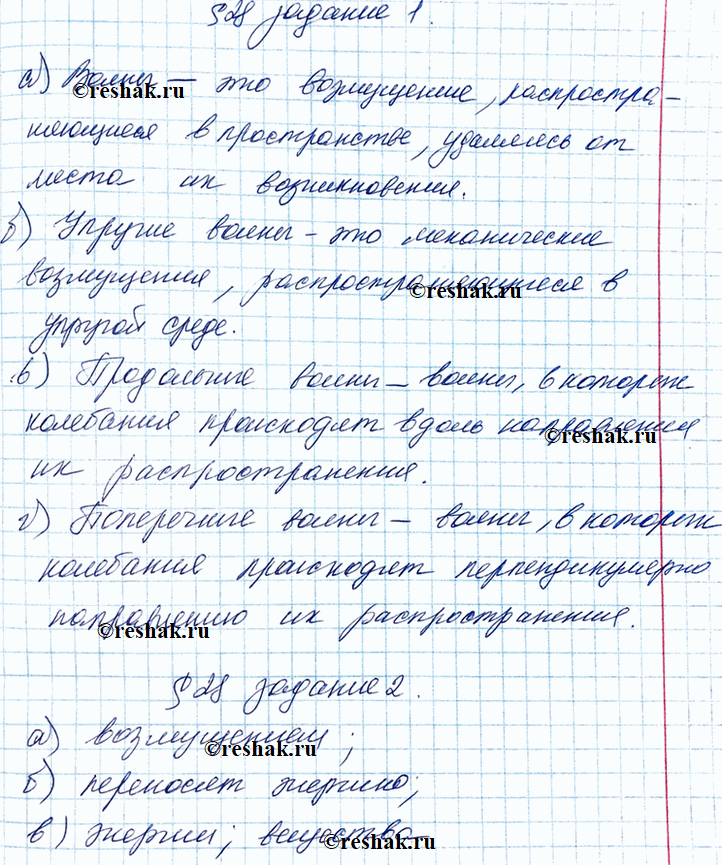 §28 задание 1.
а) Волны – это возмущение, распростра-
няющиеся в пространстве, удаляясь от
места их возникновения.
б) Упругие волны – это механические
возмущения, распространяющиеся в
упругой среде.
в) Продольные волны – волны, в которых
колебания происходят вдоль направления
их распространения.
г) Поперечные волны – волны, в которых
колебания происходят перпендикулярно
направлению их распространения.
§ 28 задание 2.
а) возмущением;
б) переносят энергию;
в) энергии; вещества
©reshak.ru
©reshak.ru
©reshak.ru
©reshak.ru
©reshak.ru
©reshak.ru